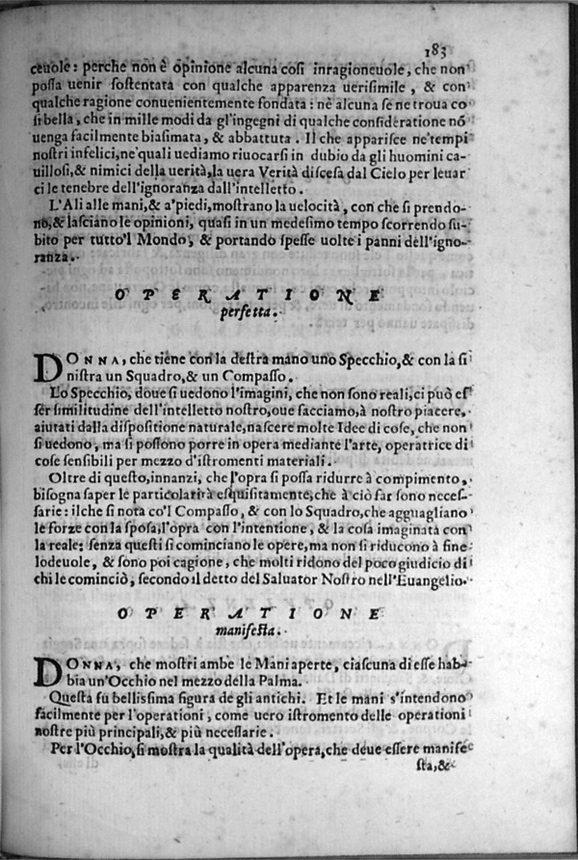 183
ceuole: perche non è opinione alcuna così inragioneuole, che non
possa uenir sostentata con qualche apparenza uerisimile, & con
qualche ragione conuenientemente fondata: nè alcuna se ne troua co
si bella, che in mille modi da gl'ingegni di qualche consideratione nõ
uenga facilmente biasimata, & abbattuta. Il che apparisce ne'tempi
nostri infelici, ne'quali uediamo riuocarsi in dubio da gli huomini ca-
uillosi, & nimici della uerità, la uera Verità discesa dal Cielo per leuar
ci le tenebre dell'ignoranza dall'intelletto.
L'Ali alle mani, & a'piedi, mostrano la uelocità, con che si prendo-
no, & lasciano le opinioni, quasi in un medesimo tempo scorrendo su-
bito per tutto'l Mondo, & portando spesse uolte i panni dell'igno-
ranza.
OPERATIONE
perfetta.
DONNA, che tiene con la destra mano uno Specchio, & con la si
nistra un Squadro, & un Compasso.
Lo Specchio, doue si uedono l'imagini, che non sono reali, ci può es
ser similitudine dell'intelletto nostro, oue facciamo, à nostro piacere,
aiutati dalla dispositione naturale, nascere molte Idee di cose, che non
si uedono, ma si possono porre in opera mediante l'arte, operatrice di
cose sensibili per mezzo d'istromenti materiali.
Oltre di questo, innanzi, che l'opra si possa ridurre à compimento,
bisogna saper le particolarità esquisitamente, che à ciò far sono neces-
sarie: ilche si nota co'l Compasso, & con lo Squadro, che agguagliano
le forze con la sposa, l'opra con l'intentione, & la cosa imaginata con
la reale: senza questi si cominciano le opere, ma non si riducono à fine
lodeuole, & sono poi cagione, che molti ridono del poco giudicio di
chi le cominciò, secondo il detto del Saluator Nostro nell'Euangelio.
OPERATIONE
manifesta.
DONNA, che mostri ambe le Mani aperte, ciascuna di esse hab-
bia un'Occhio nel mezzo della Palma.
Questa fu bellissima figura de gli antichi. Et le mani s'intendono
facilmente per l'operationi, come uero istromento delle operationi
nostre più principali, & più necessarie.
Per l'Occhio, si mostra la qualità dell'opera, che deue essere manife
sta, &